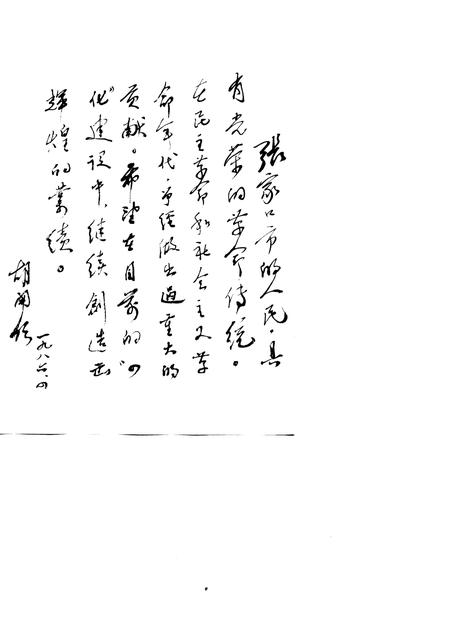 張家口市的人民，具
有光荣的革命传统。
在民主革命和社会主义革
命年代，曾经做出过重大的
贡献。希望在目前的“四
化”建设中，继续创造出
辉煌的業绩。
胡开明
一九八六.四